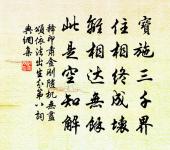 寶施三千界
住相終成壞
離相達無餘
此是空知解
釋印肅金剛隨機無盡
頌依法出生分第八詞
典網集